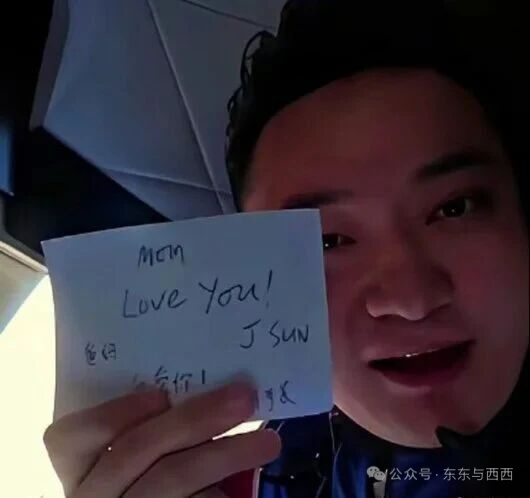 MOM
LOVE YOU!
J SUN
爸妈
爱你!
公众号·东东与西西